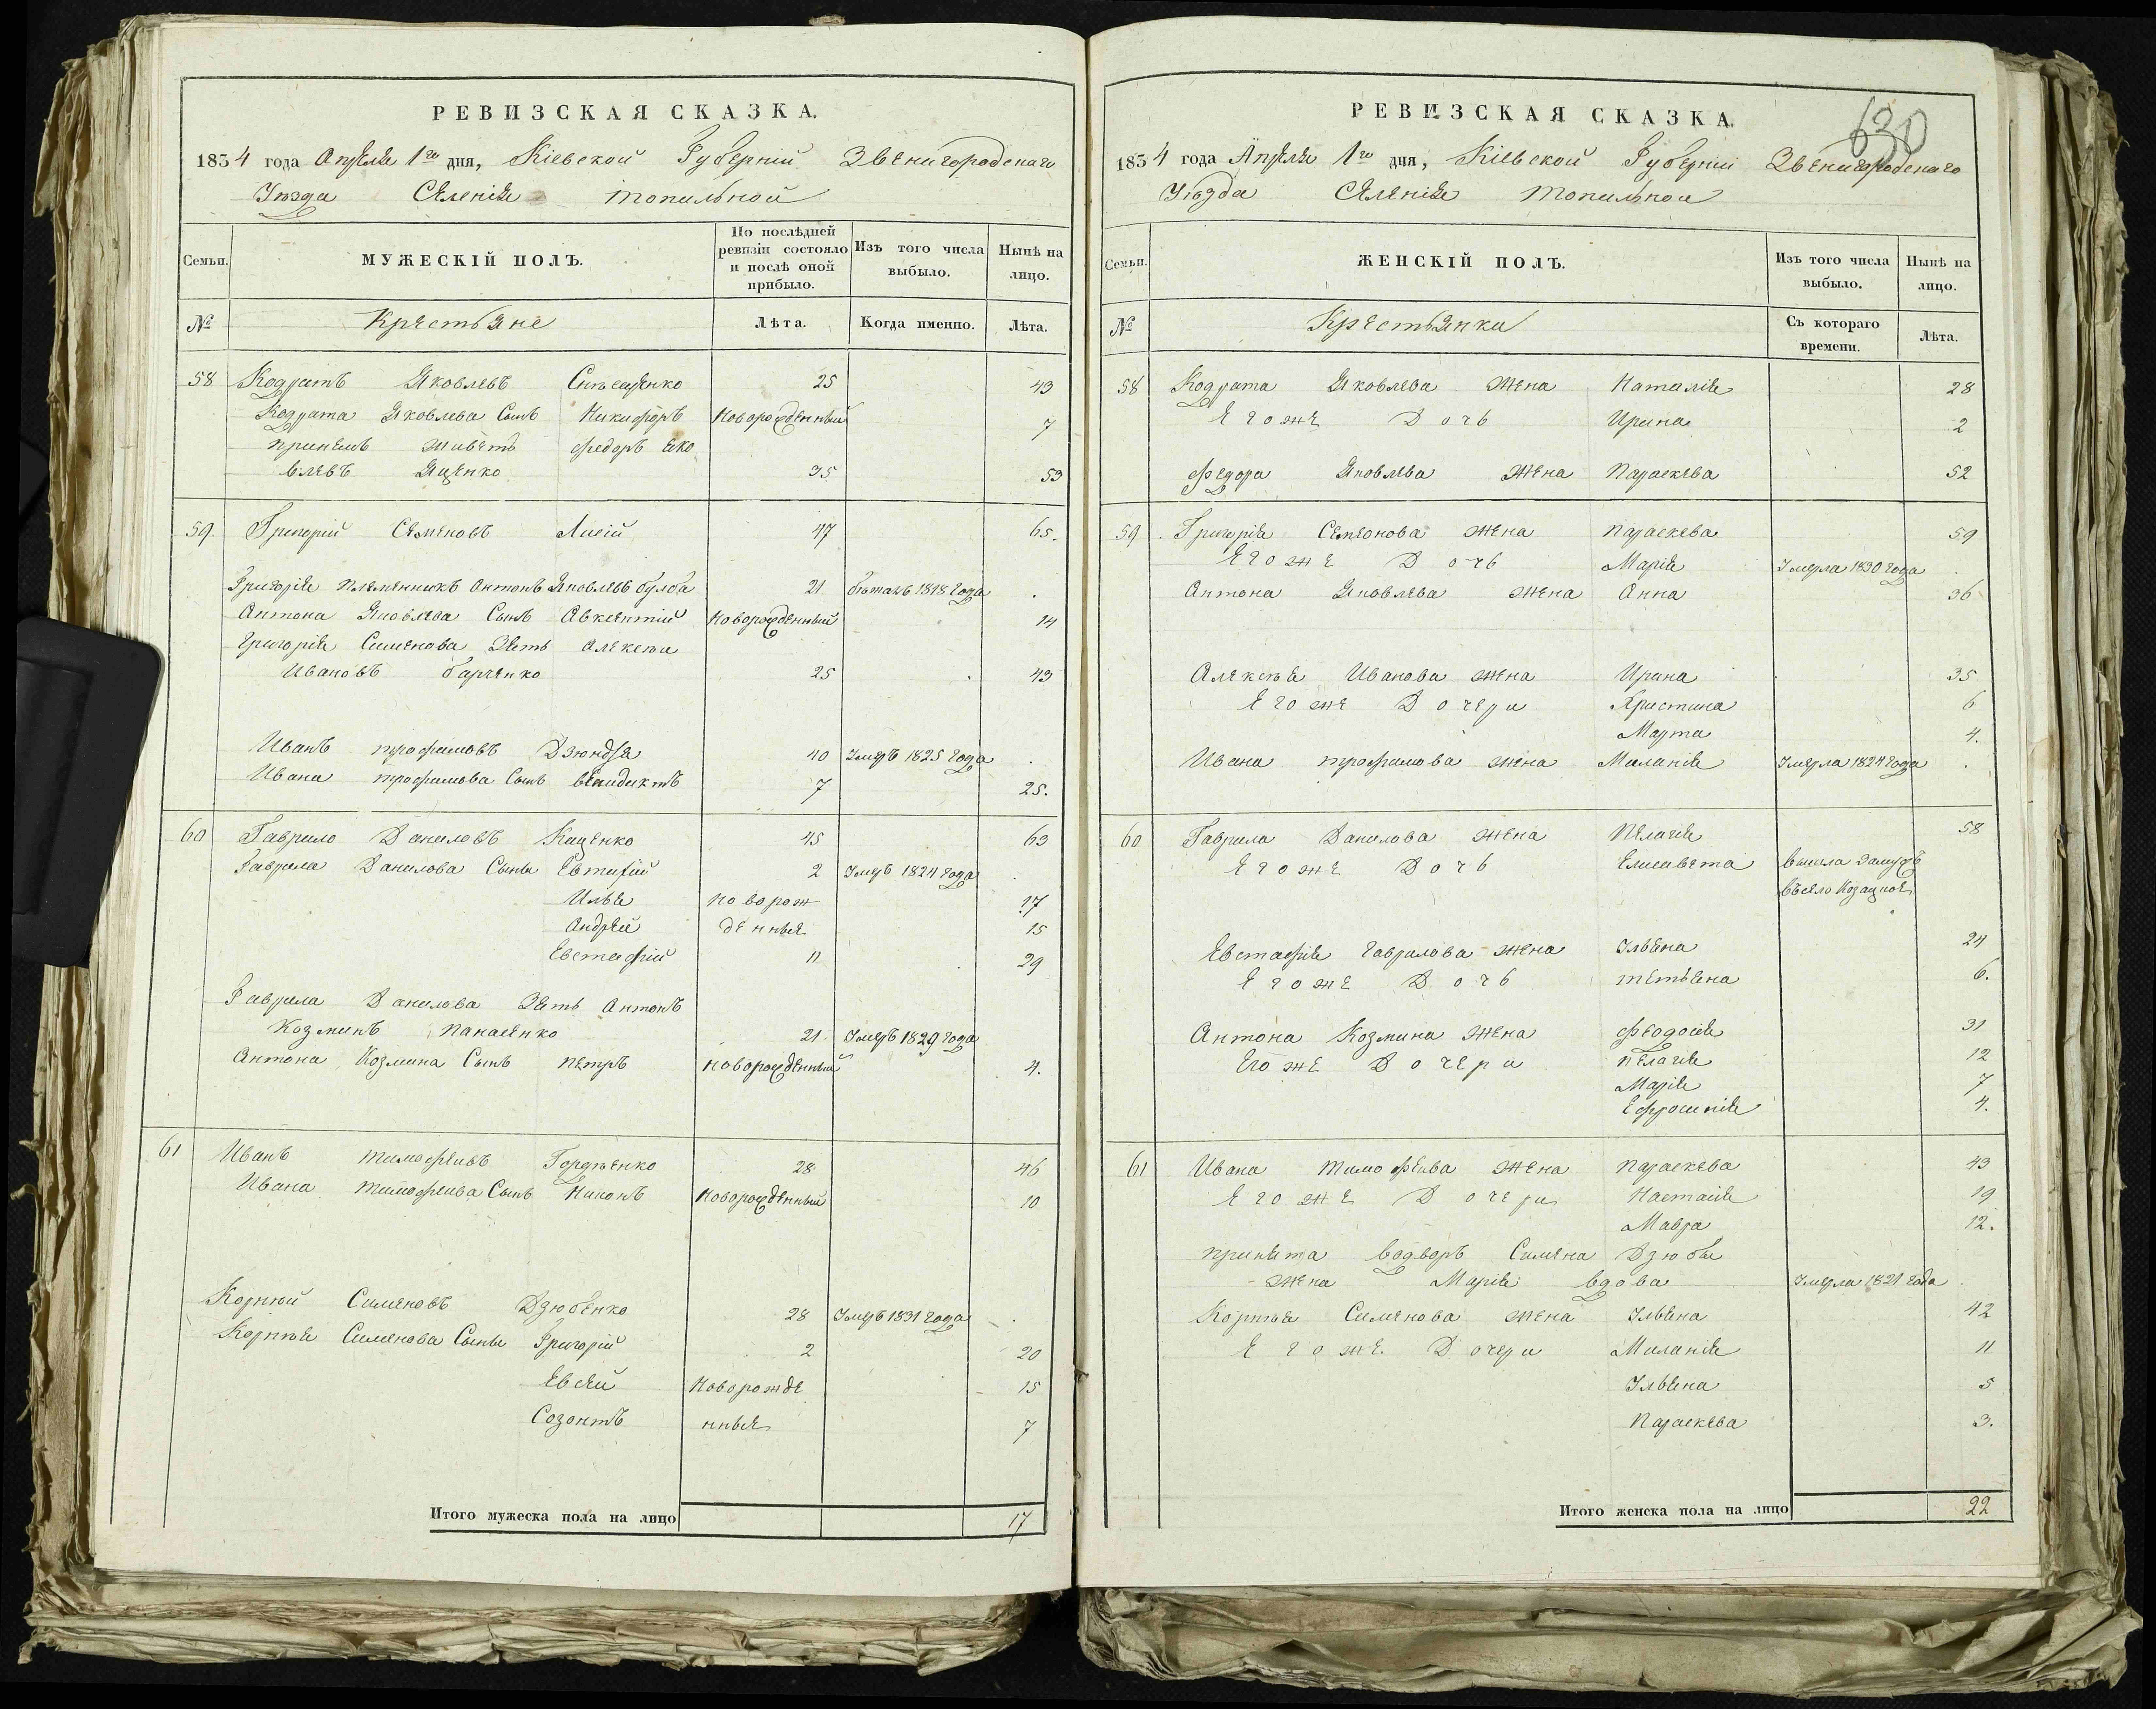 РЕВИЗСКАЯ СКАЗКА.
1834 года Апреля 1го дня, Кіевской Губерніи Звенигородскаго
Уѣзда Селенія Топильной
Семьи.
МУЖЕСКІЙ ПОЛЪ.
По послѣдней ревизіи состояло и послѣ оной прибыло.
Изъ того числа выбыло.
Нынѣ на лицо.
№ Крестьяне Лѣта. Когда именно. Лѣта.
58 Кодратъ Яковлевъ 25 43
Кодрата Яковлева Сынъ Никифоръ Новорожденный 7
принятъ живетъ Федоръ Яко
влевъ Яценко 35 53
59. Григорій Семеновъ Лисій 47 65.
Григорія племянникъ Антонъ Яковлевъ булба 21 бѣжалъ 1818 года
Антона Яковлева Сынъ Авксентій Новорожденный 14
Григорія Сименова Зять Алексѣй
Ивановъ 25 43
Иванъ трофимовъ Дзюндзя 40 Умеръ 1825 года
Ивана трофимова Сынъ Венидиктъ 7 25.
60 Гаврило Даниловъ Каценко 45 63
Гаврила Данилова Сыны Евтихій 2 Умеръ 1824 года
Илья новорож 17
Андрей денныя 15
Евстафій 11 29
Гаврила Данилова Зять Антонъ
Козминъ Панасенко 21 Умеръ 1829 года
Антона Козмина Сынъ Петръ новорожденный 4.
61 Иванъ Тимофеивъ Гордѣенко 28 46
Ивана Тимофеива Сынъ Никонъ Новорожденный 10
Корній Сименовъ Дзюбенко 28 Умеръ 1831 года
Корнѣя Сименова Сыны Григорій 2 20
Евсей Новорожде 15
Созонтъ нныя 7
Итого мужеска пола на лицо 17
630
РЕВИЗСКАЯ СКАЗКА
1834 года Апреля 1го дня, Кіевской Губерніи Звенигородскаго
Уѣзда Селенія Топильной
Семьи.
ЖЕНСКІЙ ПОЛЪ.
Изъ того числа выбыло.
Нынѣ на лицо.
№ Крестьянки Съ котораго времени. Лѣта.
58 Кодрата Яковлева жена Наталія 28
Его же Дочь Ирина 2
Федора Яковлева жена Параскева 52
59 Григорія Семионова жена Параскева 59
Его же Дочь Марія Умерла 1830 года
Антона Яковлева жена Анна 36
Алексѣя Иванова жена Ирина 35
Его же Дочери Христина 6
Марта 4.
Ивана трофимова жена Миланія Умерла 1824 года
60 Гаврила Данилова жена Пелагія 58
Его же Дочь Елисавета вышла замужъ
въ село Козацкое
Евстафія Гаврилова жена Ульяна 24
Его же Дочь Тетьяна 6.
Антона Козмина жена Феодосія 31
Его же Дочери Пелагія 12
Марія 7
Ефросинія 4.
61 Ивана Тимофеива жена Параскева 43
Его же Дочери Настасія 19
Мавра 12.
принята водворъ Симена Дзюбы
жена Марія вдова Умерла 1821 года
Корнѣя Сименова жена Ульяна 42
Его же Дочери Миланія 11
Ульяна 5
Параскева 3.
Итого женска пола на лицо 22